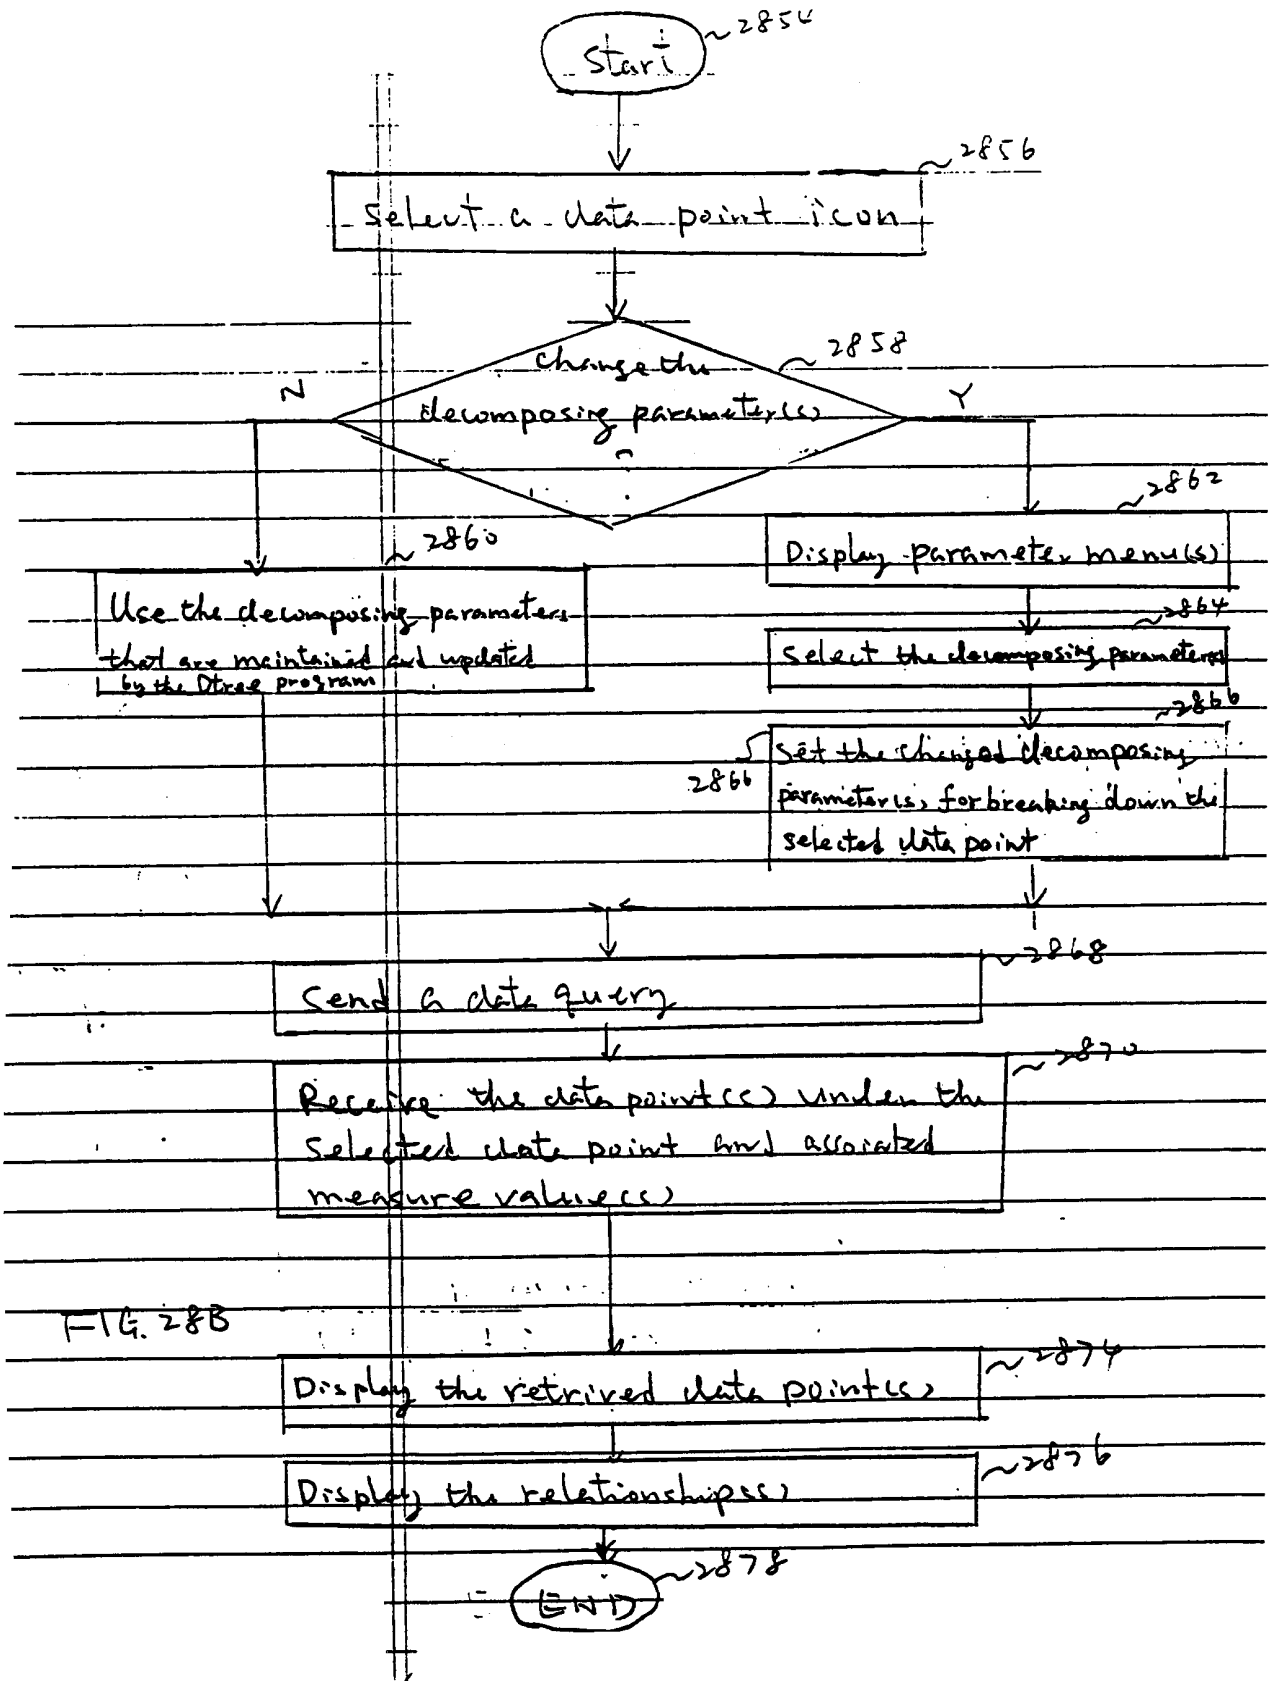 Start
2854
2856
Select a data point icon
2858
Change the
decomposing parameter(s)
?
N
Y
2860
Use the decomposing parameters
that are maintained and updated
by the Dtree program
2862
Display parameter menu(s)
2864
Select the decomposing parameters
2866
2866
Set the changed decomposing
parameter(s) for breaking down the
selected data point
2868
Send a data query
2870
Receive the data point(s) under the
selected data point and associated
measure value(s)
FIG. 28B
2874
Display the retrived data point(s)
2876
Display the relationship(s)
2878
END